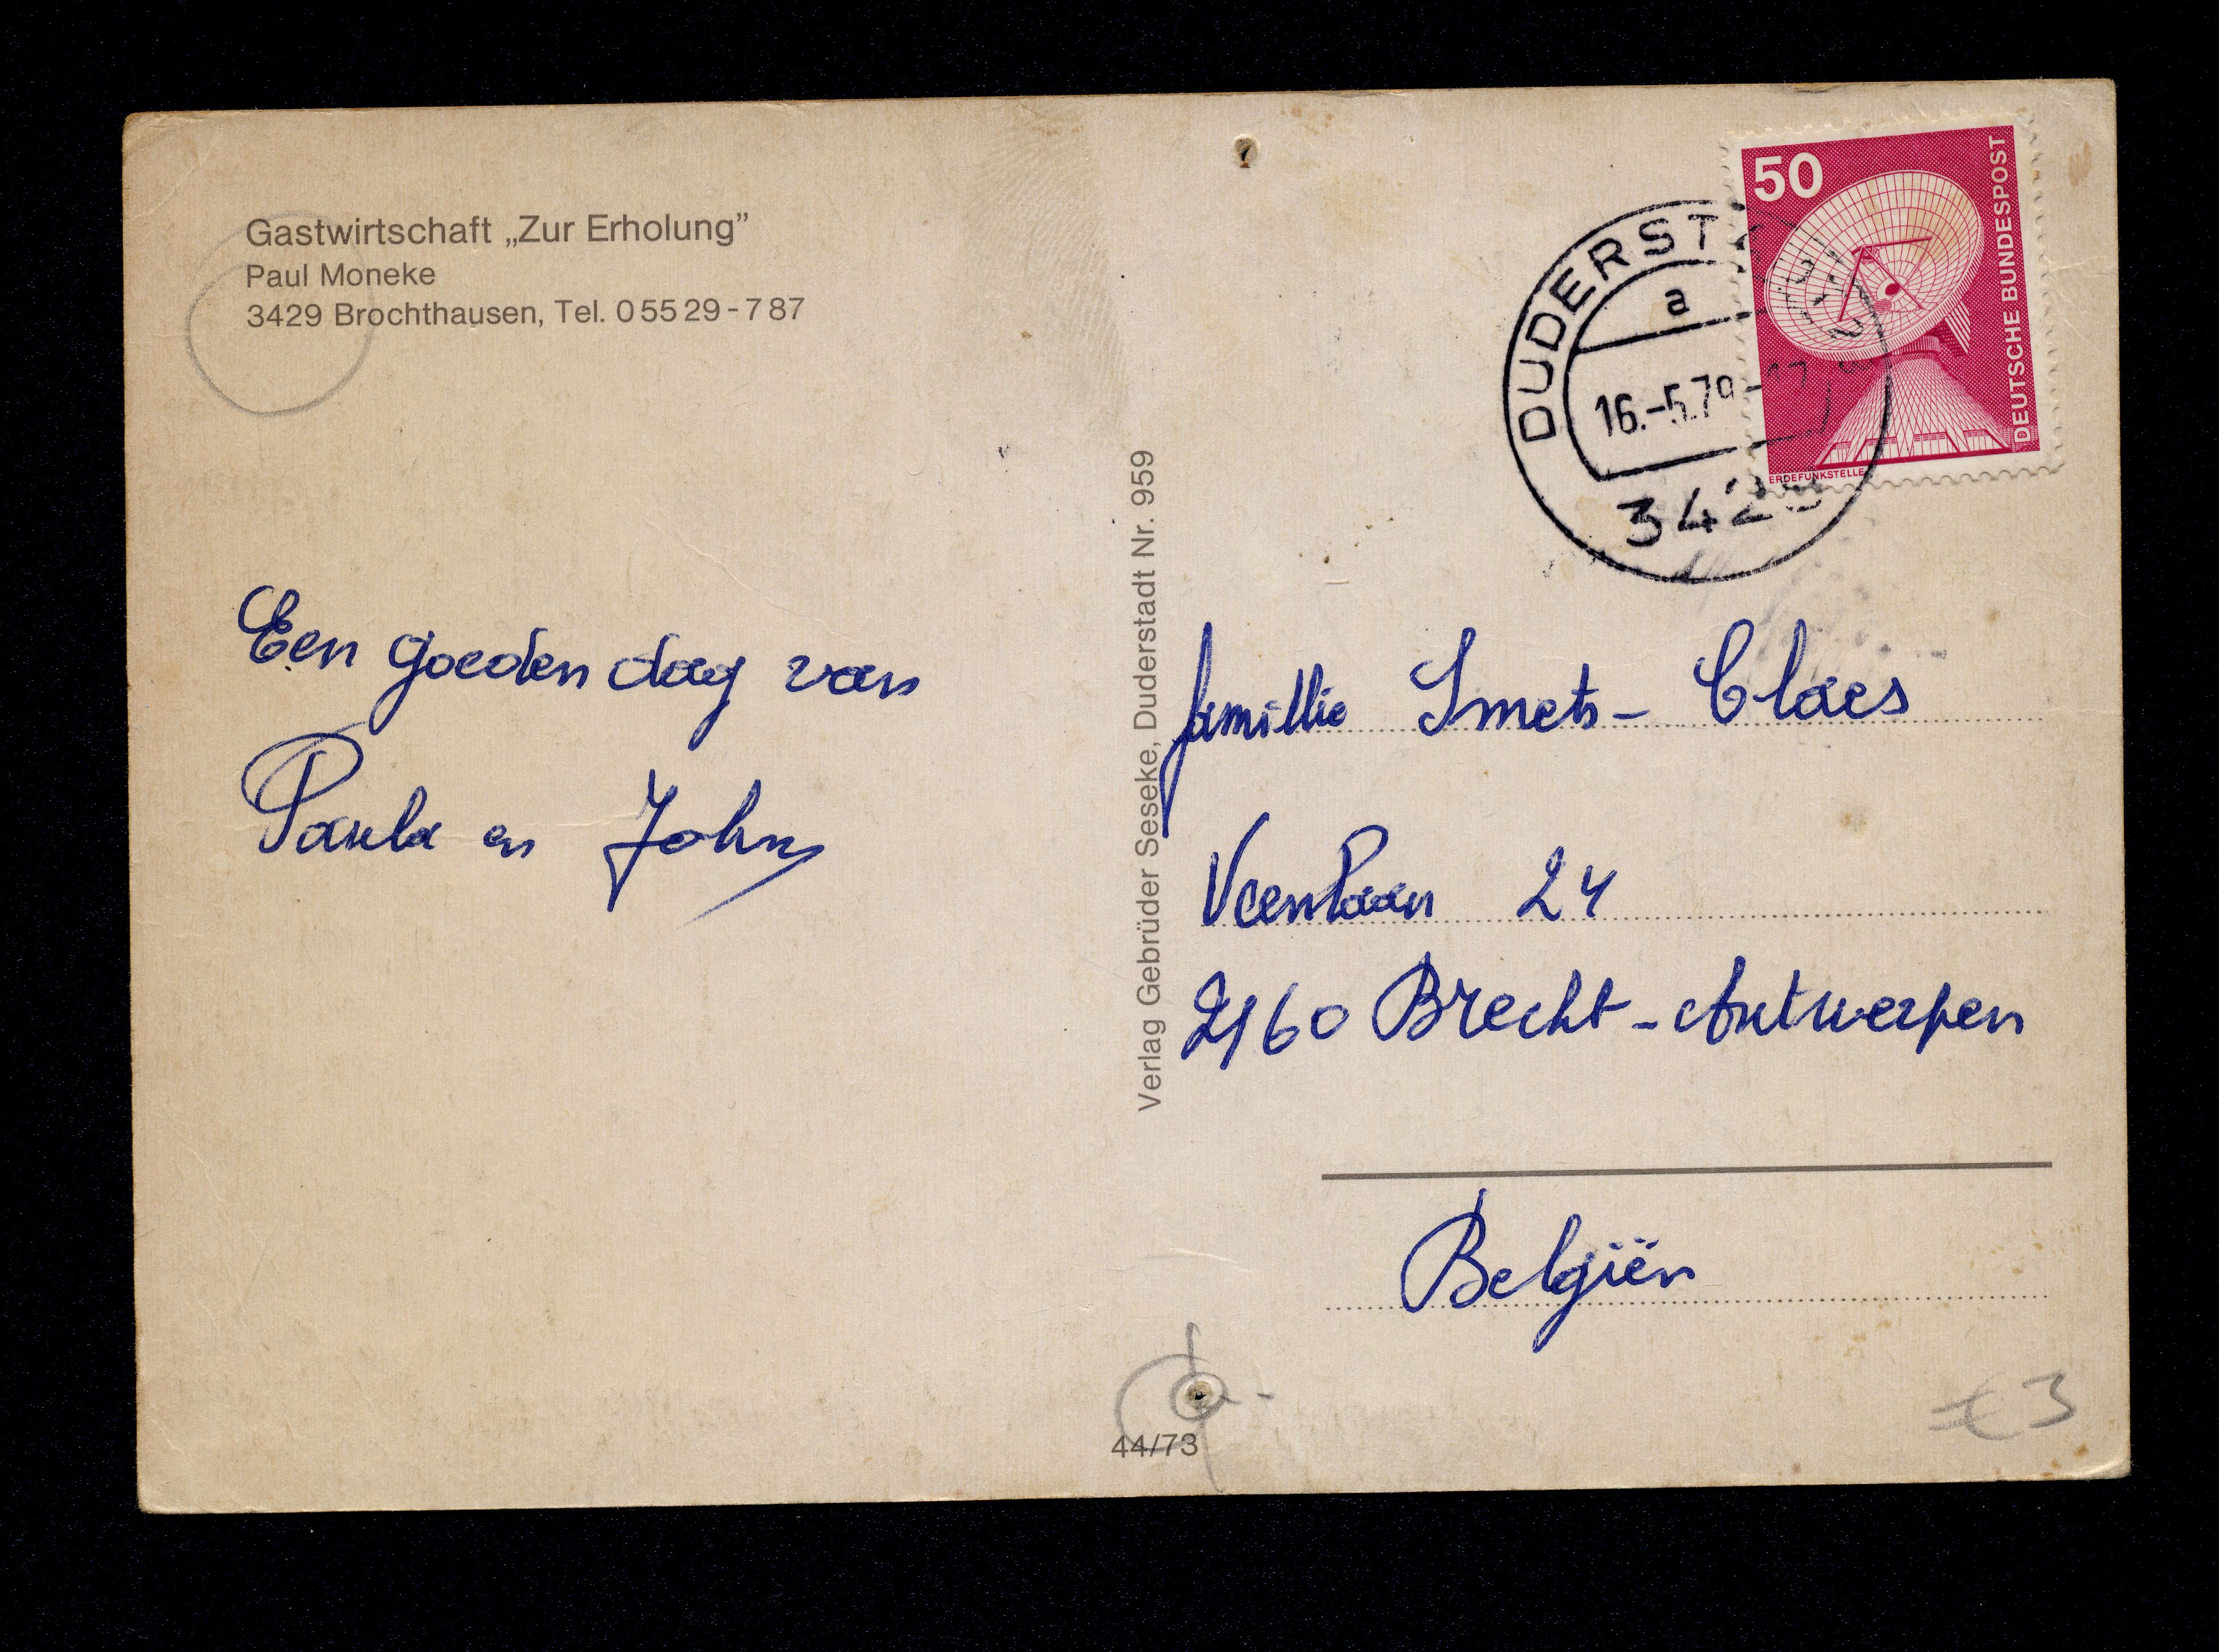 Gastwirtschaft „Zur Erholung”
Paul Moneke
3429 Brochthausen, Tel. 05529-787
Een goeden dag van
Paula en John
Verlag Gebrüder Seseke, Duderstadt Nr. 959
44/73
50
DEUTSCHE BUNDESPOST
ERDEFUNKSTELLE
DUDERST
a
16.-5.79
342
famillie Smets - Claes
Veenlaan 24
2160 Brecht - Antwerpen
Belgiën
€3